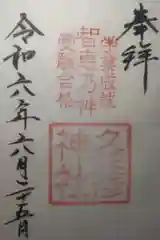 奉拝
学業成就
智恵乃神
受験合格
久
神社
令和六年六月二十五日